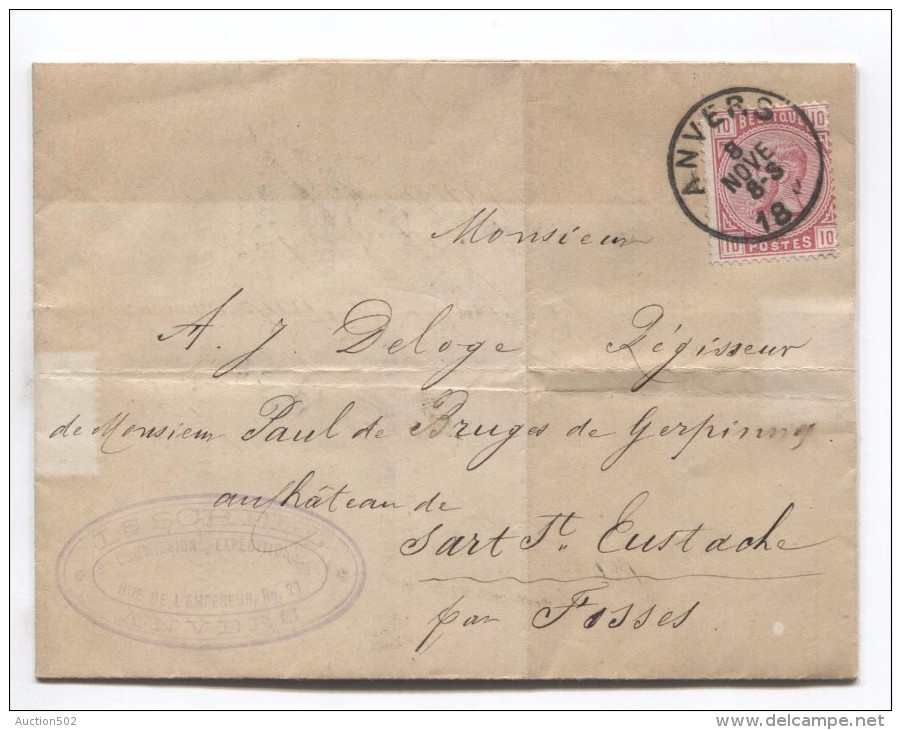 ANVERS
8
NOVE
8-S
18
10 BELGIQUE 10
10 POSTES 10
Monsieur
A. J. Deloge Régisseur
de Monsieur Paul de Bruges de Gerpinnes
au château de
Sart St. Eustache
par Fosses
COMMISSION, EXPEDITION
RUE DE L'EMPEREUR, No. 27
ANVERS
Auction502
www.delcampe.net